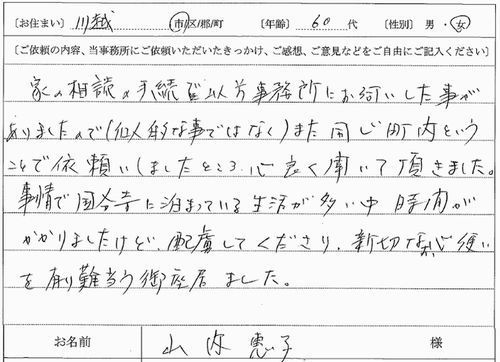 〔お住まい〕 川越 市/区/郡/町 〔年齢〕 60 代 〔性別〕 男・女
〔ご依頼の内容、当事務所にご依頼いただいたきっかけ、ご感想、ご意見などをご自由にご記入ください〕
家の相談の手続で以前事務所にお伺いした事が
ありましたので(個人的な事ではなく)また同じ町内という
ことで依頼いしましたところ、心良く聞いて頂きました。
事情で国分寺に泊まっている生活が多い中 時間が
かかりましたけど、配慮してくださり、新切な心使い
を有難当う御座居ました。
お名前 山 恵子 様